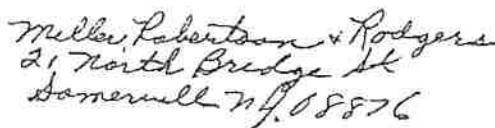 Miller, Robertson & Rodgers
21 North Bridge St
Somerville NJ. 08876